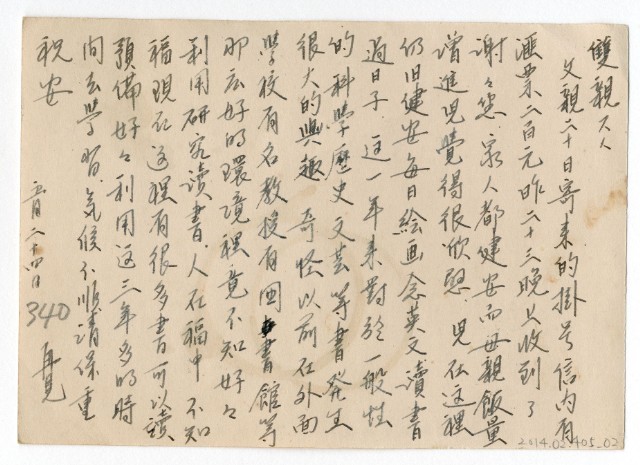 雙親大人
父親二十日寄来的掛号信內有
滙票二百元昨二十三晚上收到了
謝々您家人都健安而母親飯量
增進児覺得很欣慰 児在这裡
仍旧健安每日絵画念英文讀書
過日子 这一年来對於一般性
的科學歷史文芸等書発生
很大的興趣 奇怪以前在外面
學校有名教授有図書館等
那広好的環境裡竟不知好々
利用研究讀書、人在福中不知
福現在这裡有很多書可以讀
預備好々利用这三年多的時
间去學習、気候不順請保重
祝安
五月二十四日
340
再見
2014.02.405_02